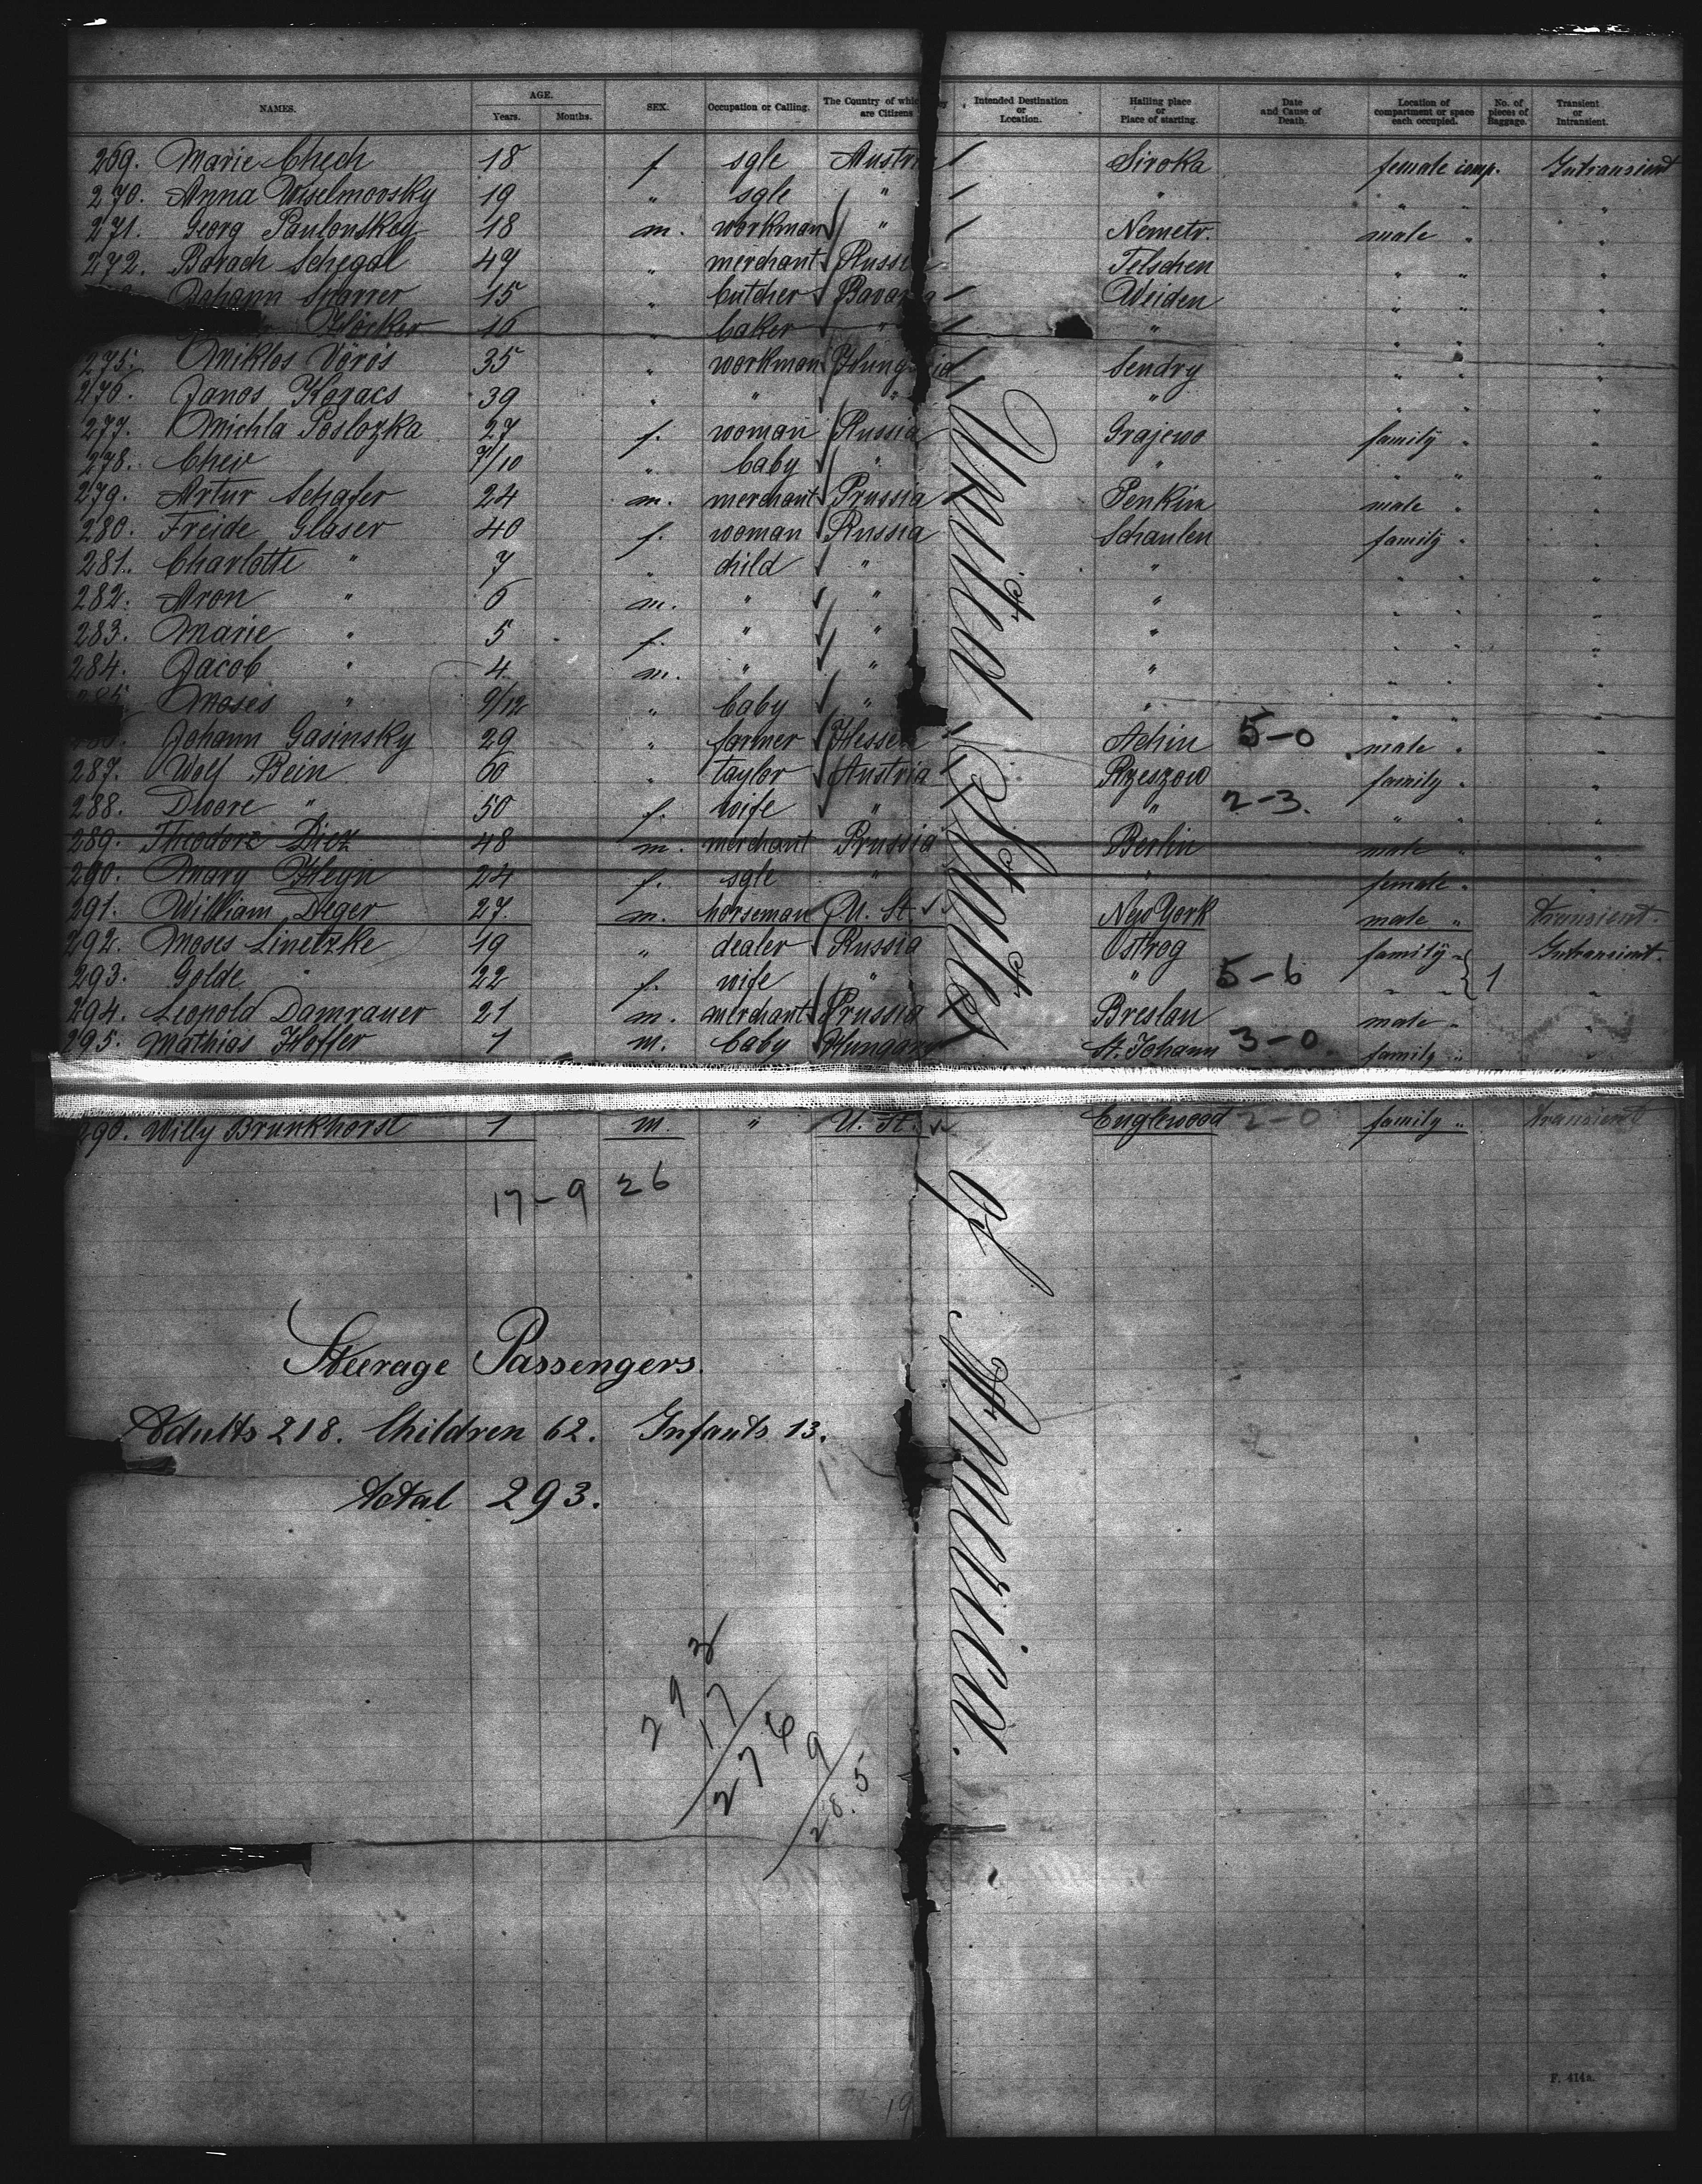 NAMES. AGE. Years. Months. SEX. Occupation or Calling. The Country of which are Citizens Intended Destination or Location. Hailing place or Place of starting. Date and Cause of Death. Location of compartment or space each occupied. No. of pieces of Baggage. Transient or Intransient.
269. Marie Chech 18 f sgle Austri Siroka female comp. Intransient
270. Anna 19 " sgle " " " " "
271. Georg 18 m. workman " Nemetr. male " "
272. Barach Schegal 49 " merchant Russi Telschen " " "
Johann Sparrer 15 " butcher Bavaria Weiden " " "
Höcker 16 " baker " " " " "
275. Miklos Vörös 35 " workman Hung Sendry " " "
276. Janos Kovacs 39 " " " " " " "
277. Michla Poslozka 27 f. woman Russia Grajewo family " "
278. Chev 7/10 " baby " " " " "
279. Artur Schafer 24 m. merchant Prussia Penkun male " "
280. Freide Glaser 40 f. woman Russia Schaulen family " "
281. Charlotte " 7 " child " " " " "
282. Aron " 6 m. " " " " " "
283. Marie " 5 f. " " " " " "
284. Jacob " 4 m. " " " " " "
285. Moses " 9/12 " baby " " " " "
Johann Gasinsky 29 " farmer Hessen Achin 5-0 male " "
287. Wolf Bein 60 " taylor Austria Rzeszow family " "
288. Dwore " 50 f. wife " " 2-3. " " "
289. Theodore Diez 48 m. merchant Prussia Berlin male " "
290. Mary Heyn 24 f. sgle " " female " "
291. William Deger 27. m. horseman U. St. New York male " transient.
292. Moses Linetzke 19 " dealer Russia Ostrog family " Intransient.
293. Golde " 22 f. wife " " 5-6 " " 1 "
294. Leopold Damrauer 21 m. merchant Prussia Breslau male " "
295. Mathias Hoffer 1 m. baby Hungary St. Johann 3-0 family " "
296. Willy Brunkhorst 1 m. " U. St. Englewood 2-0 family " transient
United States of America.
17-9 26
Steerage Passengers.
Adults 218. Children 62. Infants 13.
total 293.
293
17
276
9
285
19
F. 414a.